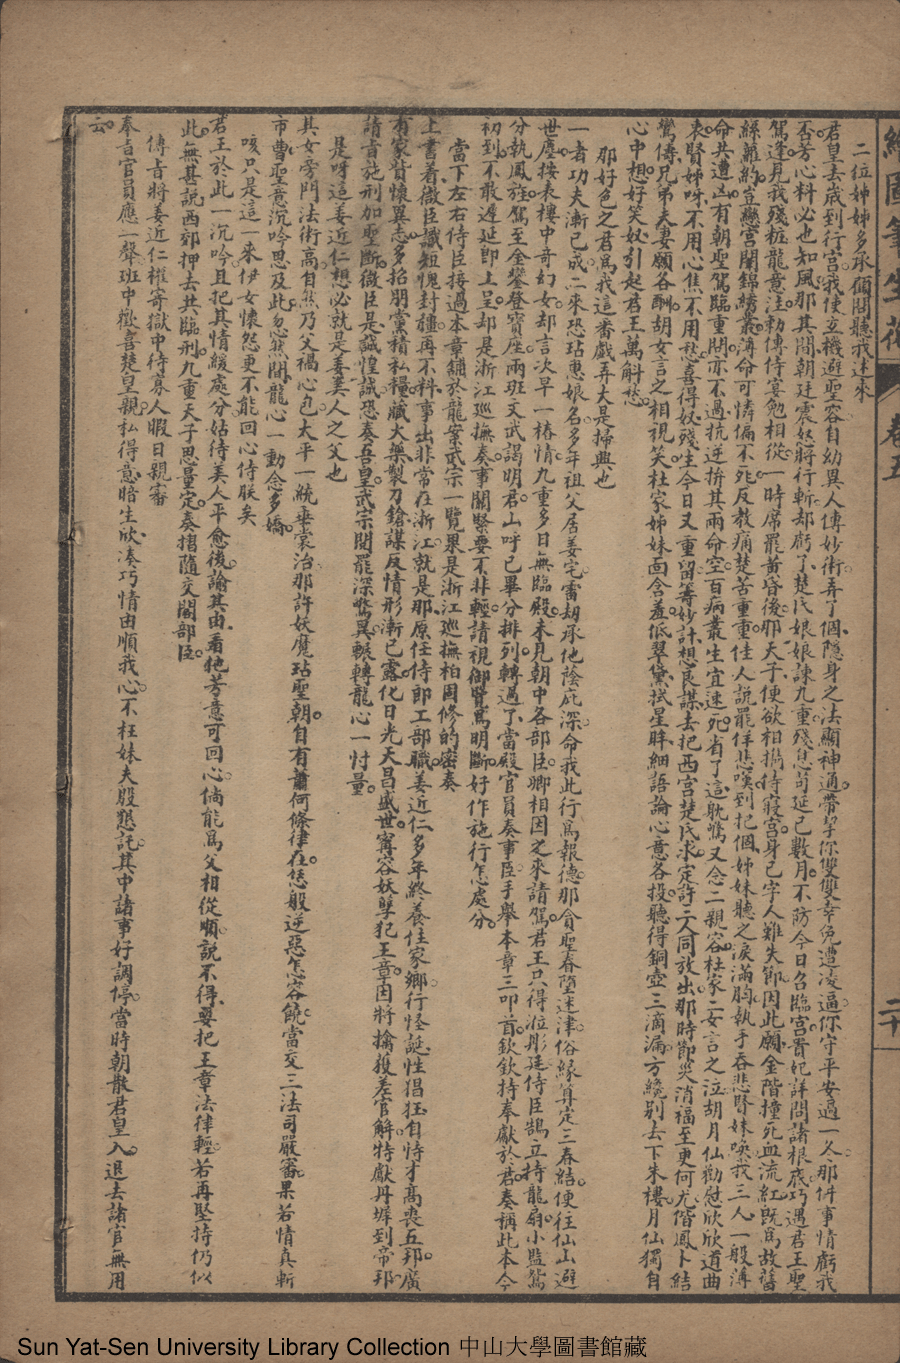 繪圖筆生花
卷五
二十
二位姊姊多承顧問聽我述來
君皇去歲到行宮我使立機避聖容自幼異人傳妙術弄了個隱身之法顯神通帶挈你雙雙幸免遭凌逼你守平安過一冬那件事情虧我
否芳心料必也知風那其間朝廷震怒將行斬却虧了楚氏娘娘諫九重殘息苟延已數月不防今日召臨宮胥妃詳問諸根底巧遇君王聖
駕逢見我殘粧龍意注勅傳侍宴勉相從一時席罷黃昏後那天子便欲相攜侍寢宮身已字人難失節因此願金階撞死血流紅既為故舊
絲蘿約豈戀宮闈錦繡叢薄命可憐偏不死反教痛楚苦重重佳人說罷佯悲嘆到把個姊妹聽之淚滿胸執手吞悲賢妹喚我三人一般薄
命共遭凶有朝聖駕臨重問亦不過抗逆拚其兩命空百病叢生宜速死省了這耽驚又念二親容杜家二女言之泣胡月仙勸慰欣欣道曲
衷賢姊呀不用心焦不用愁喜得奴殘生今日又重留籌妙計想良謀去把西宮楚氏求定許二人同放出那時節災消福至更何尤偕鳳卜結
鸞儔兄弟夫妻願各酬胡女言之相視笑杜家姊妹面含羞低翠黛拭星眸細語論心意各投聽得銅壺三滴漏方纔別去下朱樓月仙獨自
心中想好笑奴引起君王萬斛愁
那好色之君為我這番戲弄大是掃興也
一者功夫漸已成二來恐玷惠娘名多年祖父居姜宅雷劫承他陰庇深命我此行為報德那會聖春墮迷津俗緣算定三春結便往仙山避
世塵按表樓中奇幻女却言次早一樁情九重多日無臨殿未見朝中各部臣卿相因之來請駕君王只得涖彤廷侍臣鵠立持龍扇小監鶯
分執鳳旌駕至金鑾登寶座兩班文武謁明君山呼已畢分排列轉過了當殿官員奏事臣手舉本章三叩首欽欽持奉獻於君奏稱此本今
初到不敢遲延即上呈却是浙江巡撫奏事關緊要不非輕請視御覽為明斷好作施行怎處分
當下左右侍臣接過本章鋪於龍案武宗一覽果是浙江巡撫柏固修的密奏
上書着微臣識短愧封疆再不料事出非常在浙江就是那原任侍郎工部職姜近仁多年終養住家鄉行怪誕性猖狂自恃才高喪五邦廣
有家貲懷異志多招朋黨積私糧贓火藥製刀鎗謀反情形漸已露化日光天昌盛世寗容妖孽犯王章因將擒獲差官解特獻丹墀到帝邦
請旨施刑加聖斷微臣是誠惶誠恐奏吾皇武宗閱罷深驚異輾轉龍心一忖量
是呀這姜近仁想必就是姜美人之父也
其女旁門法術高自然乃父禍心包太平一統垂裳治那許妖魔玷聖朝自有蕭何條律在恁般逆惡怎容饒當交三法司嚴審果若情真斬
市曹聖意沉吟思及此忽然間龍心一動念多嬌
咳只是這一來伊女懷怨更不能回心侍朕矣
君王於此一沉吟且把其情緩處分姑待美人平愈後諭其由看他芳意可回心倘能為父相從順說不得要把王章法律輕若再堅持仍似
此無甚說西郊押去共臨刑九重天子思量定奏摺隨交閣部臣
傳旨將姜近仁權寄獄中待寡人暇日親審
奉旨官員應一聲班中懽喜楚皇親私得意暗生欣湊巧情由順我心不枉妹夫殷懇託其中諸事好調停當時朝散君皇入退去諸官無用
云
Sun Yat-Sen University Library Collection 中山大學圖書館藏